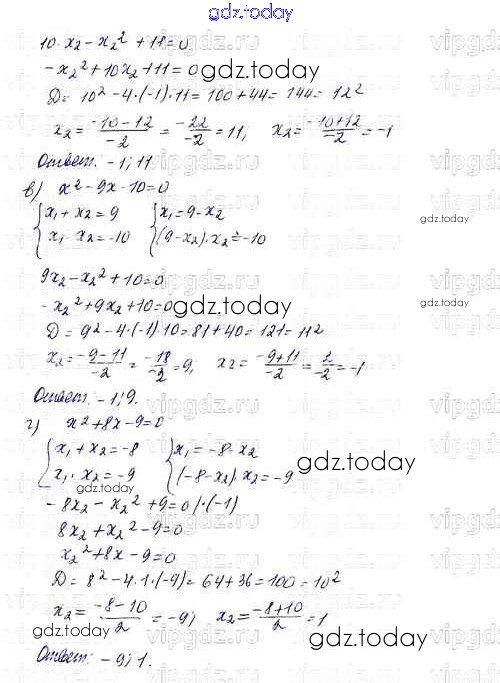 gdz.today
10·x₂ - x₂² + 11 = 0
-x₂² + 10x₂ + 11 = 0 gdz.today
D = 10² - 4·(-1)·11 = 100 + 44 = 144 = 12²
x₂ = (-10-12)/(-2) = (-22)/(-2) = 11, x₂ = (-10+12)/(-2) = -1
Ответ: -1; 11
в) x² - 9x - 10 = 0
{x₁ + x₂ = 9 {x₁ = 9 - x₂
gdz.today
{x₁ · x₂ = -10 {(9 - x₂)·x₂ = -10
9x₂ - x₂² + 10 = 0
-x₂² + 9x₂ + 10 = 0 gdz.today
gdz.today
D = 9² - 4·(-1)·10 = 81 + 40 = 121 = 11²
x₂ = (-9-11)/(-2) = (-18)/(-2) = 9, x₂ = (-9+11)/(-2) = 2/(-2) = -1
Ответ: -1; 9.
г) x² + 8x - 9 = 0
{x₁ + x₂ = -8 {x₁ = -8 - x₂
gdz.today
{x₁ · x₂ = -9 {(-8 - x₂)·x₂ = -9
gdz.today
-8x₂ - x₂² + 9 = 0 |·(-1)
8x₂ + x₂² - 9 = 0
x₂² + 8x - 9 = 0
D = 8² - 4·1·(-9) = 64 + 36 = 100 = 10²
x₂ = (-8-10)/2 = -9; x₂ = (-8+10)/2 = 1
gdz.today gdz.today
Ответ: -9; 1.
vipgdz.ru